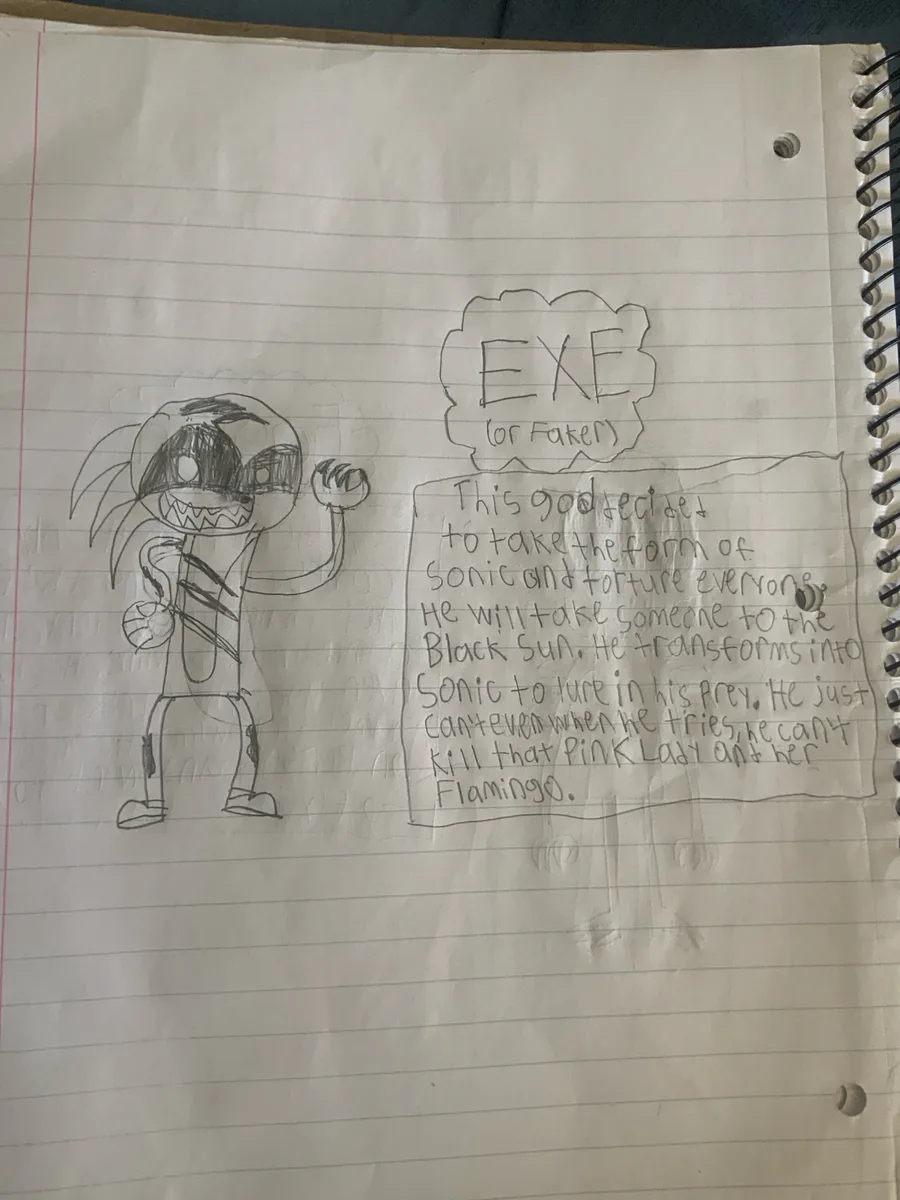 EXE
(or Faker)
This god decides
to take the form of
Sonic and torture everyone
He will take someone to the
Black Sun. He transforms into
Sonic to lure in his prey. He just
can't even when he tries, he can't
kill that Pink Lady and her
Flamingo.